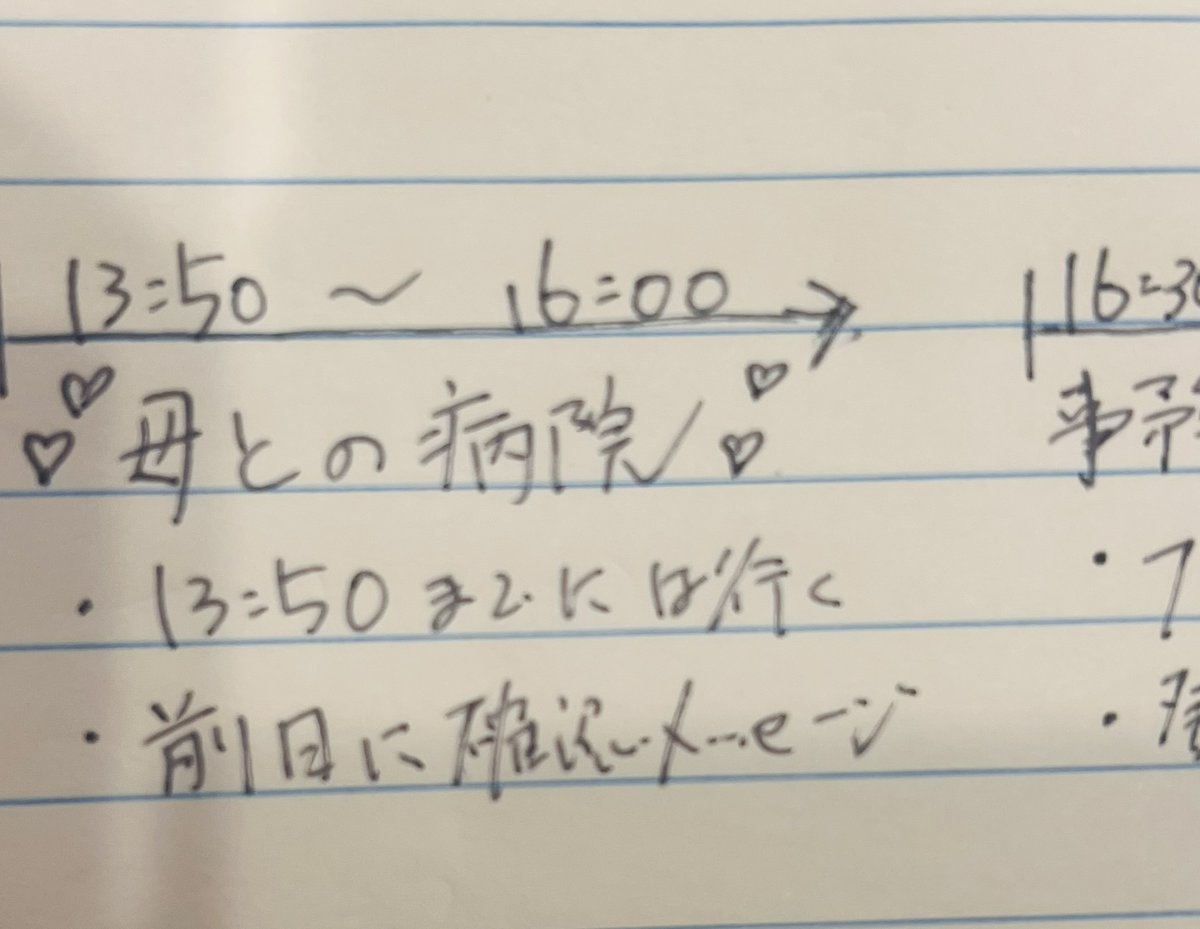 13:50 〜 16:00
♡ 母との病院 ♡
・13:50までには行く
・前日に確認メッセージ
16:30
事予